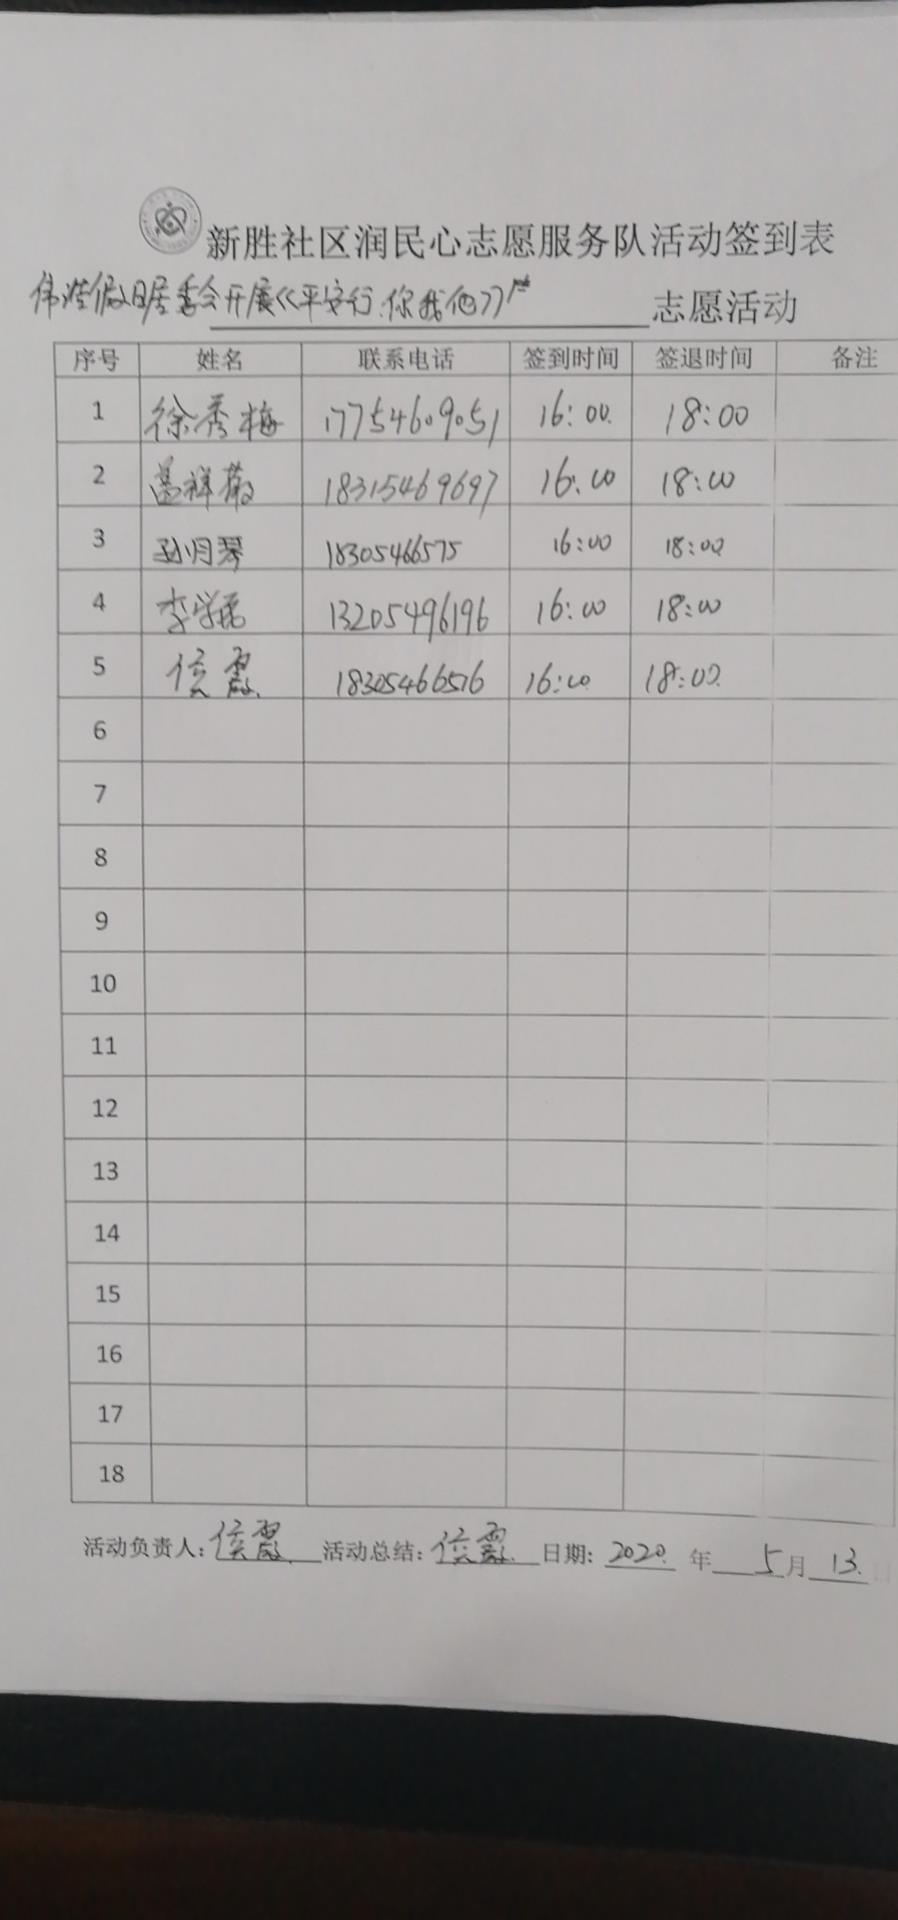 新胜社区润民心志愿服务队活动签到表
伟浩假日居委会开展《平安行,你我他》 志愿活动
序号 姓名 联系电话 签到时间 签退时间 备注
1 徐秀梅 17754609051 16:00 18:00
2 18315469697 16:00 18:00
3 孙月琴 18305466575 16:00 18:00
4 李学 13205496196 16:00 18:00
5 侯霞 18305466576 16:00 18:00
6
7
8
9
10
11
12
13
14
15
16
17
18
活动负责人:侯霞 活动总结:侯霞 日期:2020年5月13日